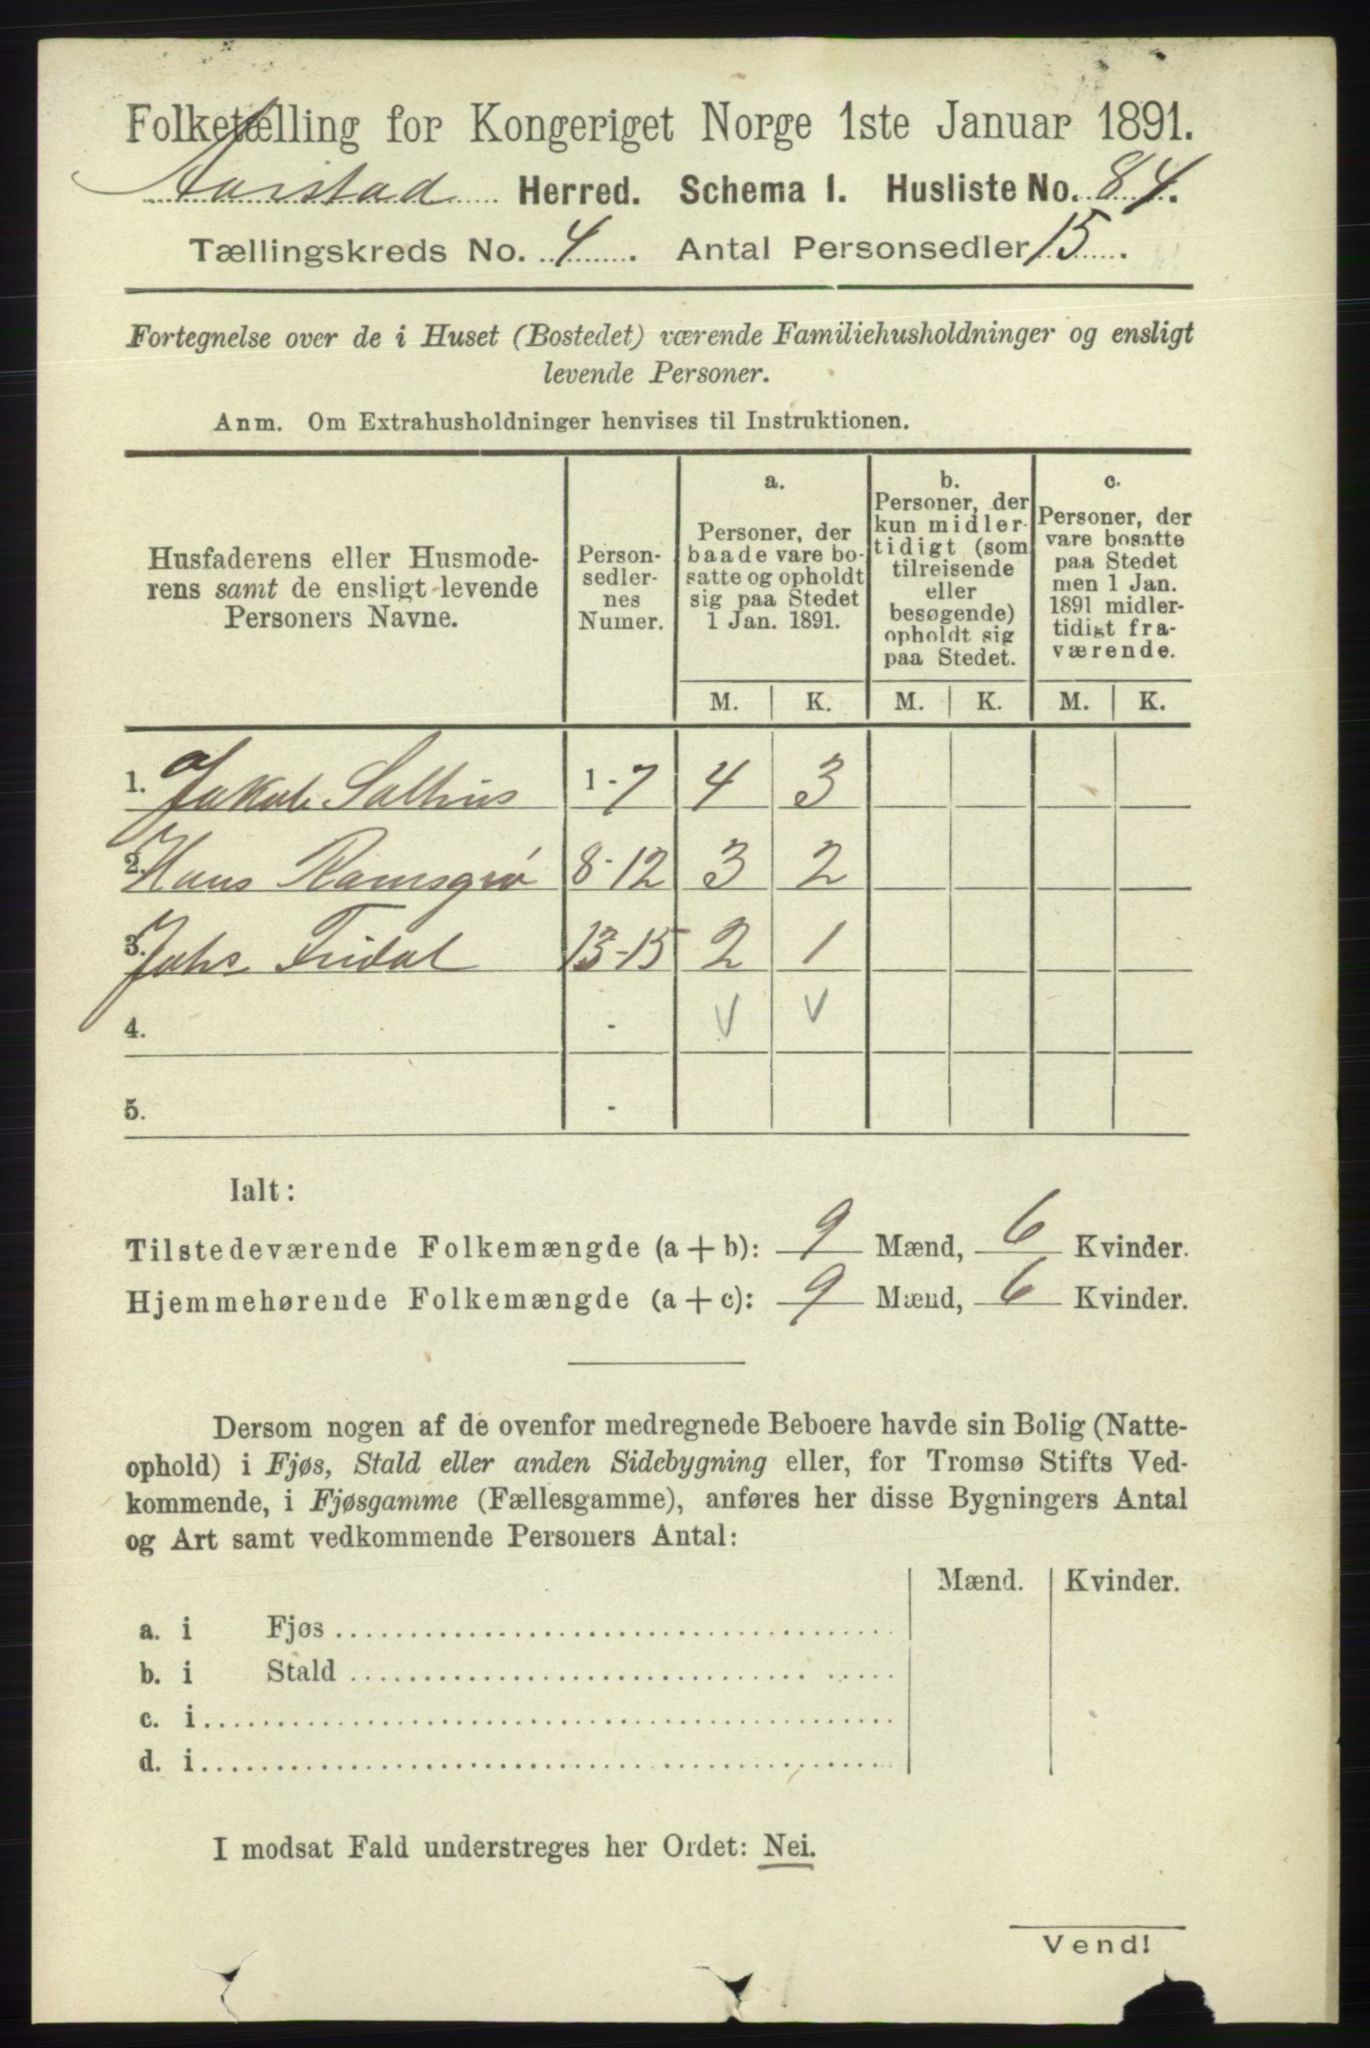 Folketælling for Kongeriget Norge 1ste Januar 1891.
Aarstad Herred. Schema I. Husliste No. 84.
Tællingskreds No. 4. Antal Personsedler 15.
Fortegnelse over de i Huset (Bostedet) værende Familiehusholdninger og ensligt
levende Personer.
Anm. Om Extrahusholdninger henvises til Instruktionen.
Husfaderens eller Husmode-
rens samt de ensligt levende
Personers Navne.
Person-
sedler-
nes
Numer.
a.
Personer, der
baade vare bo-
satte og opholdt
sig paa Stedet
1 Jan. 1891.
b.
Personer, der
kun midler-
tidigt (som
tilreisende
eller
besøgende)
opholdt sig
paa Stedet.
c.
Personer, der
vare bosatte
paa Stedet
men 1 Jan.
1891 midler-
tidigt fra-
værende.
M. K. M. K. M. K.
1. Jakob 1-7 4 3
2. Hans 8-12 3 2
3. Johs 13-15 2 1
4. - V V
5. -
Ialt:
Tilstedeværende Folkemængde (a+b): 9 Mænd, 6 Kvinder.
Hjemmehørende Folkemængde (a+c): 9 Mænd, 6 Kvinder.
Dersom nogen af de ovenfor medregnede Beboere havde sin Bolig (Natte-
ophold) i Fjøs, Stald eller anden Sidebygning eller, for Tromsø Stifts Ved-
kommende, i Fjøsgamme (Fællesgamme), anføres her disse Bygningers Antal
og Art samt vedkommende Personers Antal:
Mænd. Kvinder.
a. i Fjøs
b. i Stald
c. i
d. i
I modsat Fald understreges her Ordet: Nei.
Vend!